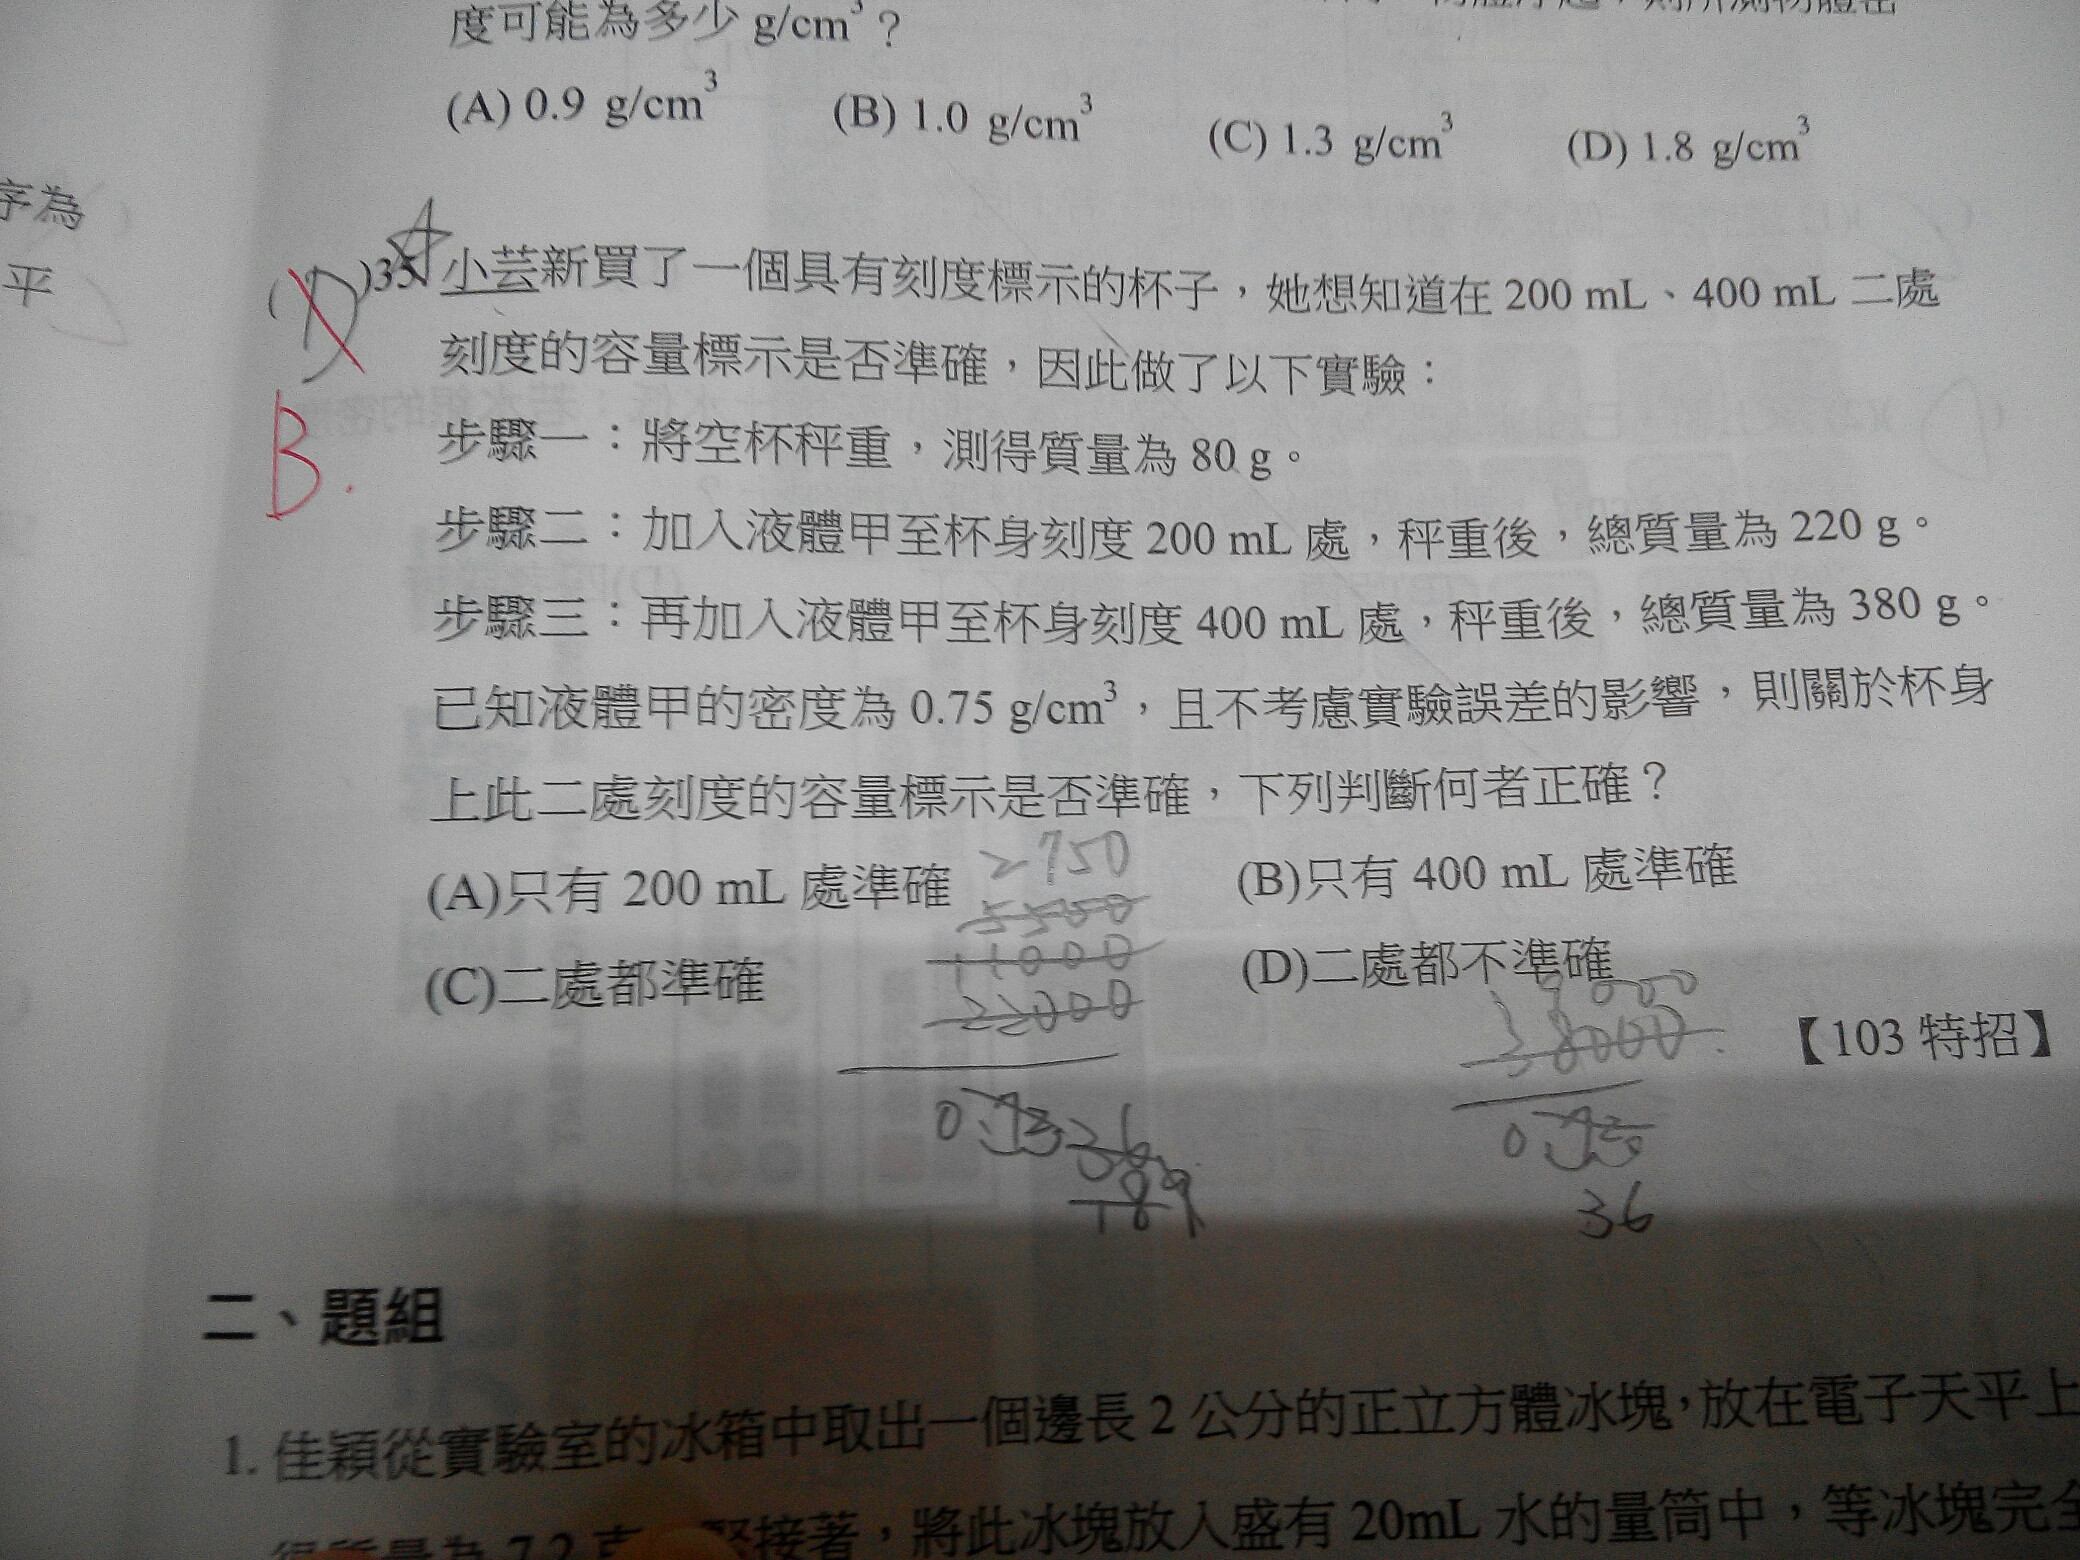 度可能為多少 g/cm³？
(A) 0.9 g/cm³ (B) 1.0 g/cm³ (C) 1.3 g/cm³ (D) 1.8 g/cm³
序為
平
( )35. 小芸新買了一個具有刻度標示的杯子，她想知道在 200 mL、400 mL 二處
刻度的容量標示是否準確，因此做了以下實驗：
B.
步驟一：將空杯秤重，測得質量為 80 g。
步驟二：加入液體甲至杯身刻度 200 mL 處，秤重後，總質量為 220 g。
步驟三：再加入液體甲至杯身刻度 400 mL 處，秤重後，總質量為 380 g。
已知液體甲的密度為 0.75 g/cm³，且不考慮實驗誤差的影響，則關於杯身
上此二處刻度的容量標示是否準確，下列判斷何者正確？
2750
(A)只有 200 mL 處準確 (B)只有 400 mL 處準確
5500
11000
(C)二處都準確 (D)二處都不準確
22000
38000
【103 特招】
36
二、題組
1. 佳穎從實驗室的冰箱中取出一個邊長 2 公分的正立方體冰塊，放在電子天平上
得質量為 7.2 克 接著，將此冰塊放入盛有 20mL 水的量筒中，等冰塊完全